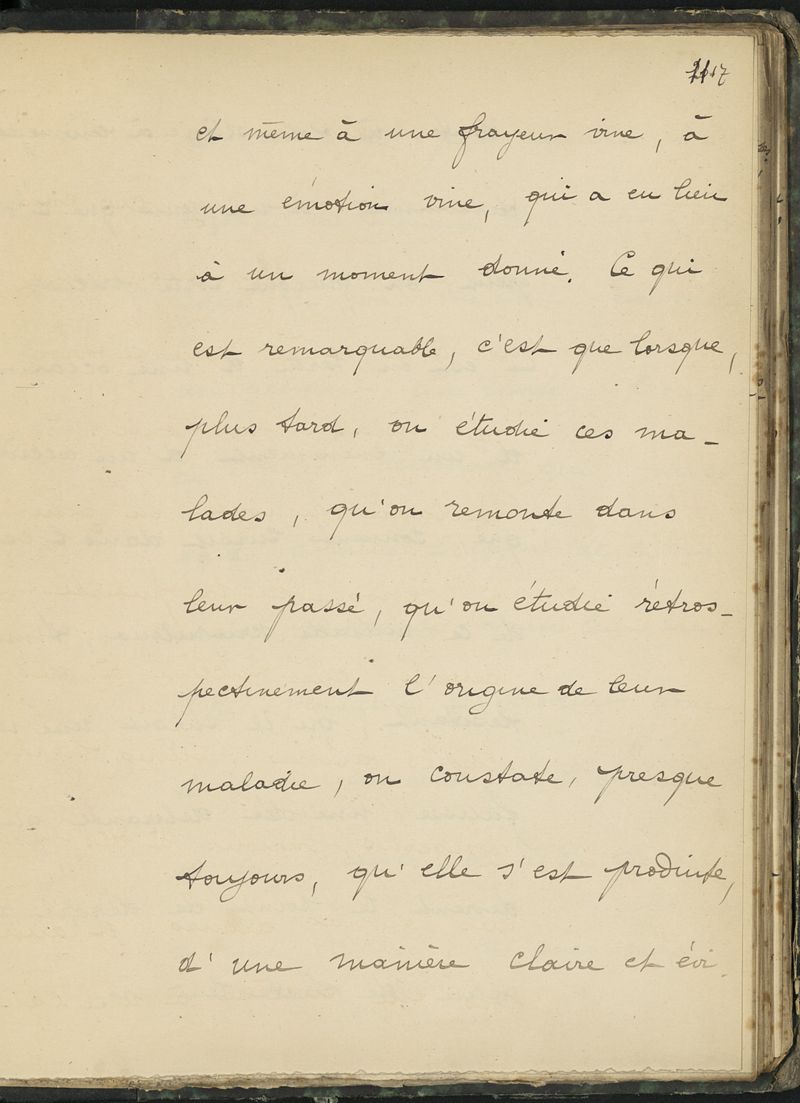 et même à une frayeur vive, à
une émotion vive, qui a eu lieu
à un moment donné. Ce qui
est remarquable, c'est que lorsque,
plus tard, on étudie ces ma-
lades, qu'on remonte dans
leur passé, qu'on étudie rétros-
pectivement l'origine de leur
maladie, on constate, presque
toujours, qu'elle s'est produite,
d'une manière claire et évi